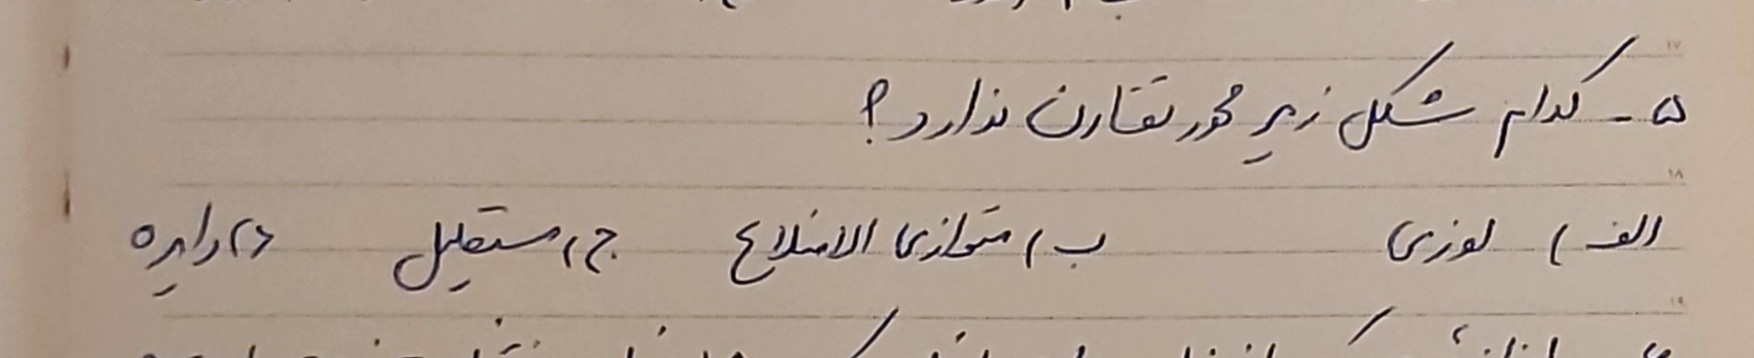 ۵ - کدام شکل زیر محور تقارن ندارد؟
الف) لوزی ب) متوازی الاضلاع ج) مستطیل د) دایره